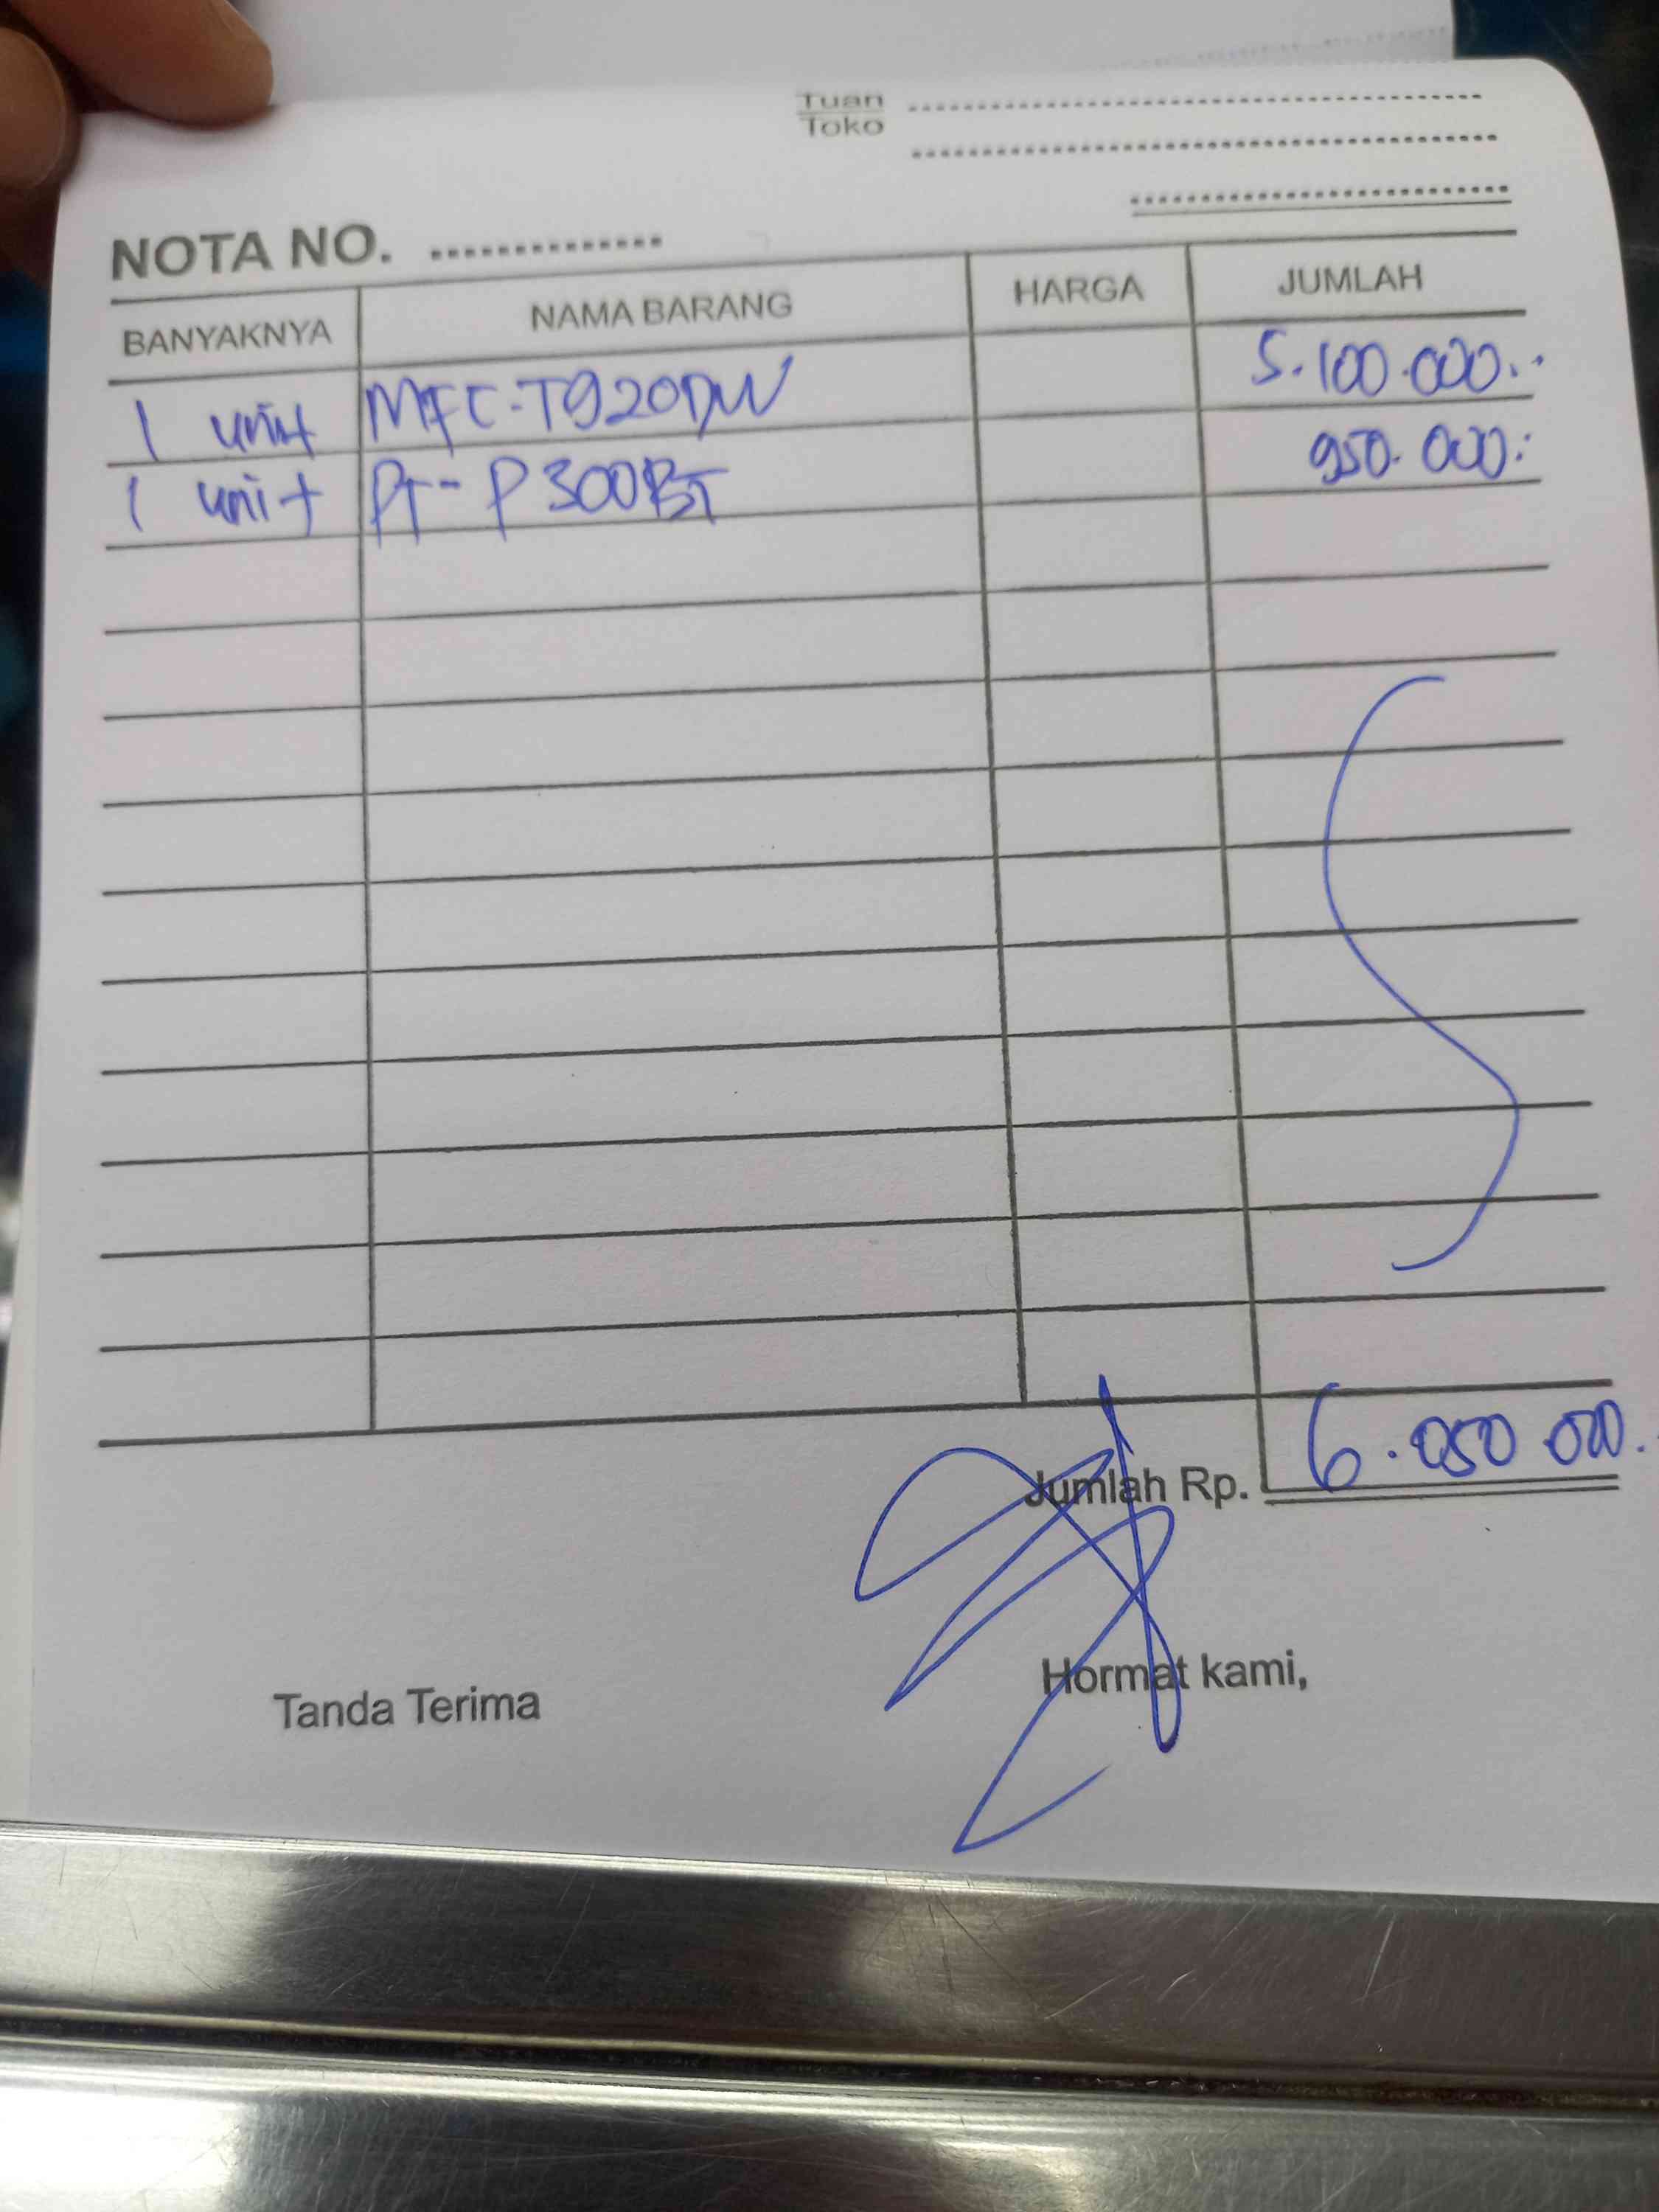 Tuan
Toko
NOTA NO. ..............
BANYAKNYA NAMA BARANG HARGA JUMLAH
1 unit MFC-T920DW 5.100.000.-
1 unit PT-P300BT 950.000.-
Jumlah Rp. 6.050.000.-
Tanda Terima Hormat kami,